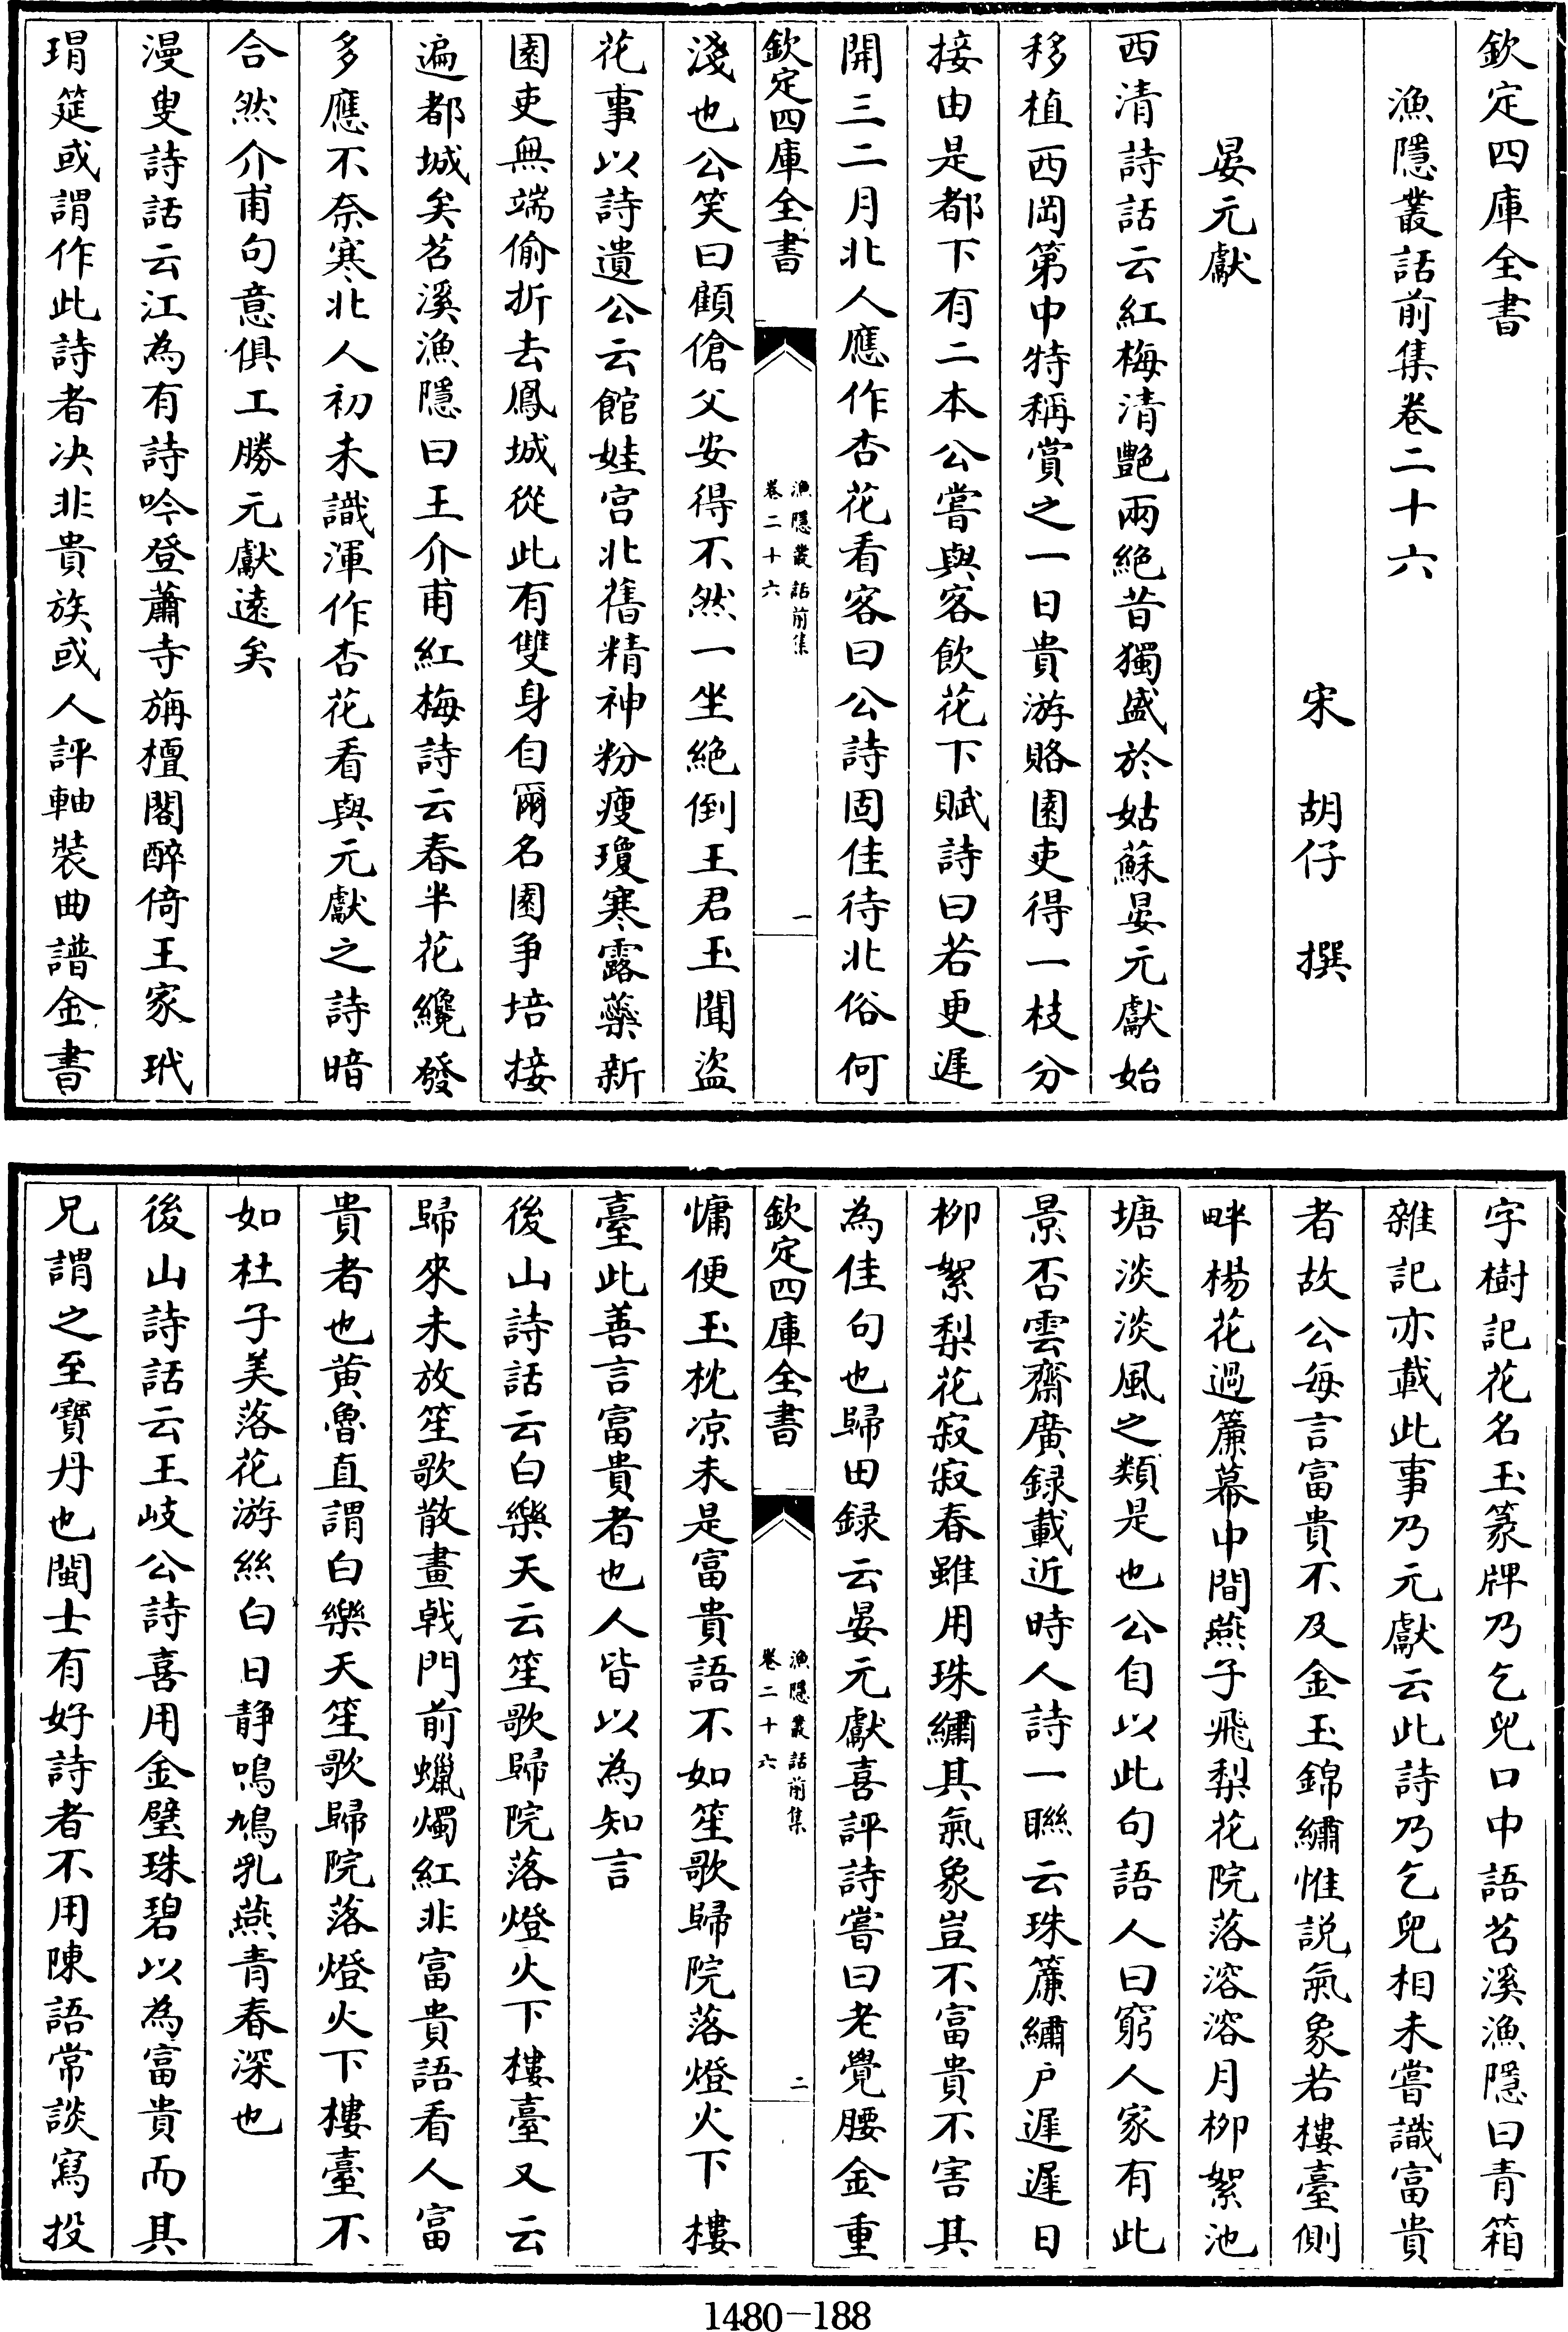 欽定四庫全書
漁隱叢話前集卷二十六
宋 胡仔 撰
晏元獻
西清詩話云紅梅清艶兩絶昔獨盛於姑蘇晏元獻始
移植西岡第中特稱賞之一日貴游賂園吏得一枝分
接由是都下有二本公嘗與客飲花下賦詩曰若更遲
開三二月北人應作杏花看客曰公詩固佳待北俗何
欽定四庫全書
漁隱叢話前集
卷二十六
一
淺也公笑曰顧傖父安得不然一坐絶倒王君玉聞盜
花事以詩遺公云館娃宫北舊精神粉瘦瓊寒露蘂新
園吏無端偷折去鳳城從此有雙身自爾名園争培接
遍都城矣苕溪漁隱曰王介甫紅梅詩云春半花纔發
多應不奈寒北人初未識渾作杏花看與元獻之詩暗
合然介甫句意俱工勝元獻遠矣
漫叟詩話云江為有詩吟登蕭寺旃檀閣醉倚王家玳
瑁筵或謂作此詩者决非貴族或人評軸裝曲譜金書
字樹記花名玉篆牌乃乞兒口中語苕溪漁隱曰青箱
雜記亦載此事乃元獻云此詩乃乞兒相未嘗識富貴
者故公每言富貴不及金玉錦繡惟説氣象若樓臺側
畔楊花過簾幕中間燕子飛梨花院落溶溶月柳絮池
塘淡淡風之類是也公自以此句語人曰窮人家有此
景否雲齋廣録載近時人詩一聯云珠簾繡户遲遲日
柳絮梨花寂寂春雖用珠繡其氣象豈不富貴不害其
為佳句也歸田録云晏元獻喜評詩嘗曰老覺腰金重
欽定四庫全書
漁隱叢話前集
卷二十六
二
慵便玉枕凉未是富貴語不如笙歌歸院落燈火下樓
臺此善言富貴者也人皆以為知言
後山詩話云白樂天云笙歌歸院落燈火下樓臺又云
歸來未放笙歌散畫戟門前蠟燭紅非富貴語看人富
貴者也黄魯直謂白樂天笙歌歸院落燈火下樓臺不
如杜子美落花游絲白日静鳴鳩乳燕青春深也
後山詩話云王岐公詩喜用金璧珠碧以為富貴而其
兄謂之至寶丹也閩士有好詩者不用陳語常談寫投
1480-188